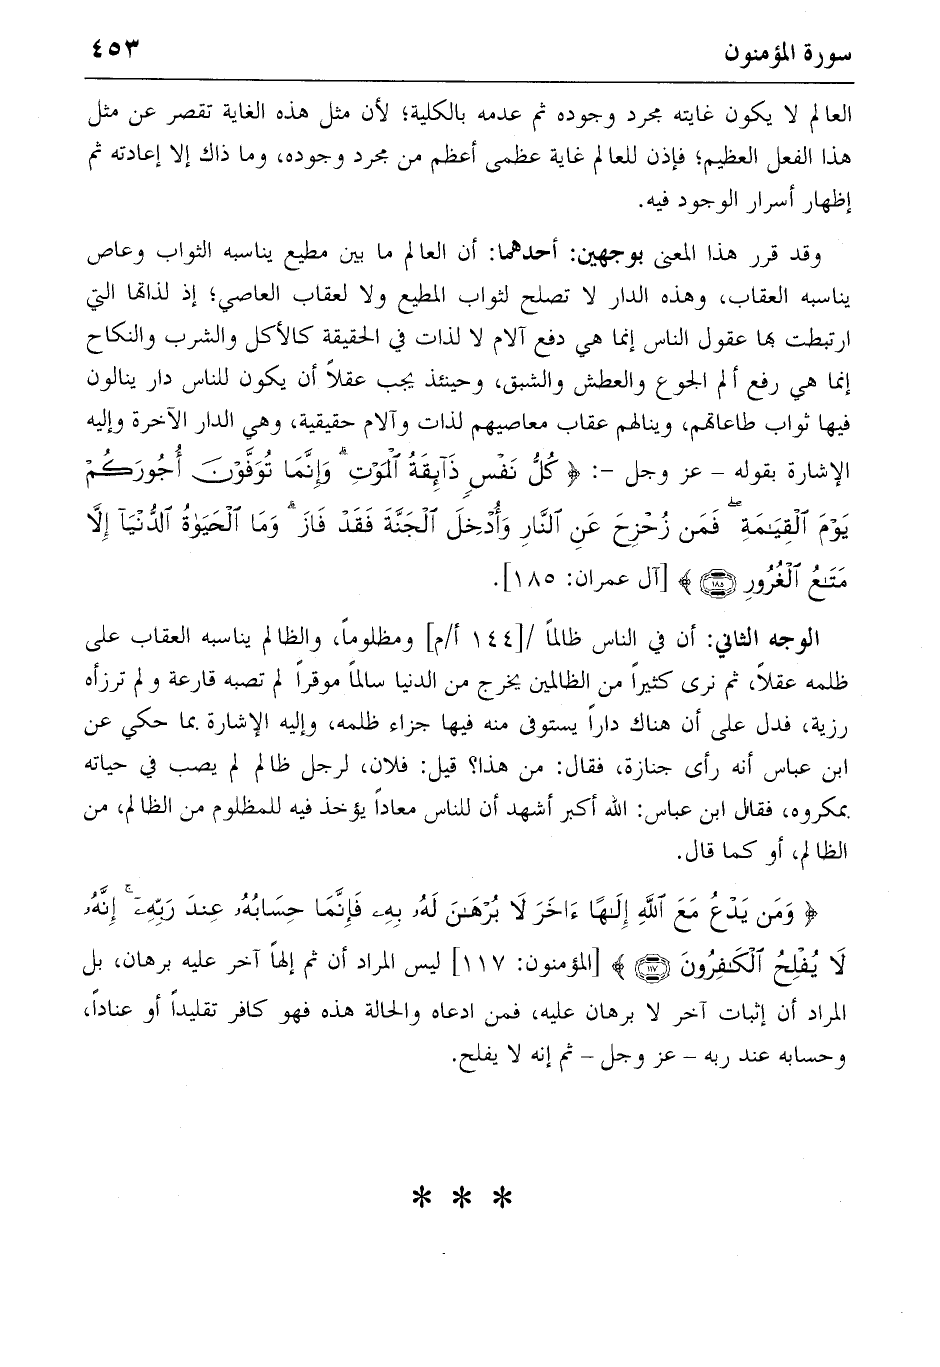 سورة المؤمنون ٤٥٣
العالم لا يكون غايته مجرد وجوده ثم عدمه بالكلية؛ لأن مثل هذه الغاية تقصر عن مثل
هذا الفعل العظيم؛ فإذن للعالم غاية عظمى أعظم من مجرد وجوده، وما ذاك إلا إعادته ثم
إظهار أسرار الوجود فيه.
وقد قرر هذا المعنى بوجهين: أحدهما: أن العالم ما بين مطيع يناسبه الثواب وعاص
يناسبه العقاب، وهذه الدار لا تصلح لثواب المطيع ولا لعقاب العاصي؛ إذ لذاتها التي
ارتبطت بها عقول الناس إنما هي دفع آلام لا لذات في الحقيقة كالأكل والشرب والنكاح
إنما هي رفع ألم الجوع والعطش والشبق، وحينئذ يجب عقلاً أن يكون للناس دار ينالون
فيها ثواب طاعاتهم، وينالهم عقاب معاصيهم لذات وآلام حقيقية، وهي الدار الآخرة وإليه
الإشارة بقوله – عز وجل –: ﴿ كُلُّ نَفْسٍ ذَآئِقَةُ ٱلْمَوْتِ ۗ وَإِنَّمَا تُوَفَّوْنَ أُجُورَكُمْ
يَوْمَ ٱلْقِيَـٰمَةِ ۖ فَمَن زُحْزِحَ عَنِ ٱلنَّارِ وَأُدْخِلَ ٱلْجَنَّةَ فَقَدْ فَازَ ۗ وَمَا ٱلْحَيَوٰةُ ٱلدُّنْيَآ إِلَّا
مَتَـٰعُ ٱلْغُرُورِ ۝١٨٥ ﴾ [آل عمران: ١٨٥].
الوجه الثاني: أن في الناس ظالماً /[١٤٤ أ/م] ومظلوماً، والظالم يناسبه العقاب على
ظلمه عقلاً، ثم نرى كثيراً من الظالمين يخرج من الدنيا سالماً موقراً لم تصبه قارعة ولم ترزأه
رزية، فدل على أن هناك داراً يستوفى منه فيها جزاء ظلمه، وإليه الإشارة بما حكي عن
ابن عباس أنه رأى جنازة، فقال: من هذا؟ قيل: فلان، لرجل ظالم لم يصب في حياته
بمكروه، فقال ابن عباس: الله أكبر أشهد أن للناس معاداً يؤخذ فيه للمظلوم من الظالم، من
الظالم، أو كما قال.
﴿ وَمَن يَدْعُ مَعَ ٱللَّهِ إِلَـٰهًا ءَاخَرَ لَا بُرْهَـٰنَ لَهُۥ بِهِۦ فَإِنَّمَا حِسَابُهُۥ عِندَ رَبِّهِۦٓ ۚ إِنَّهُۥ
لَا يُفْلِحُ ٱلْكَـٰفِرُونَ ۝١١٧ ﴾ [المؤمنون: ١١٧] ليس المراد أن ثم إلهاً آخر عليه برهان، بل
المراد أن إثبات آخر لا برهان عليه، فمن ادعاه والحالة هذه فهو كافر تقليداً أو عناداً،
وحسابه عند ربه – عز وجل – ثم إنه لا يفلح.
* * *